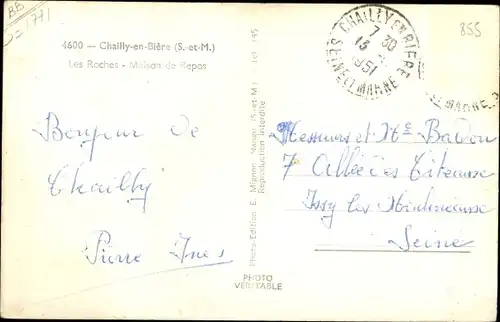 BB
1771
855
4600 — Chailly-en-Bière (S.-et-M.)
Les Roches - Maison de Repos
Bonjour de
Chailly
Pierre Ines
Photo-Edition E. Mignon
Reproduction interdite
PHOTO
VÉRITABLE
CHAILLY EN BIERE
7 30
13
1951
SEINE ET MARNE
ET MARNE
et Me
7 Allée
Issy les Moulineaux
Seine